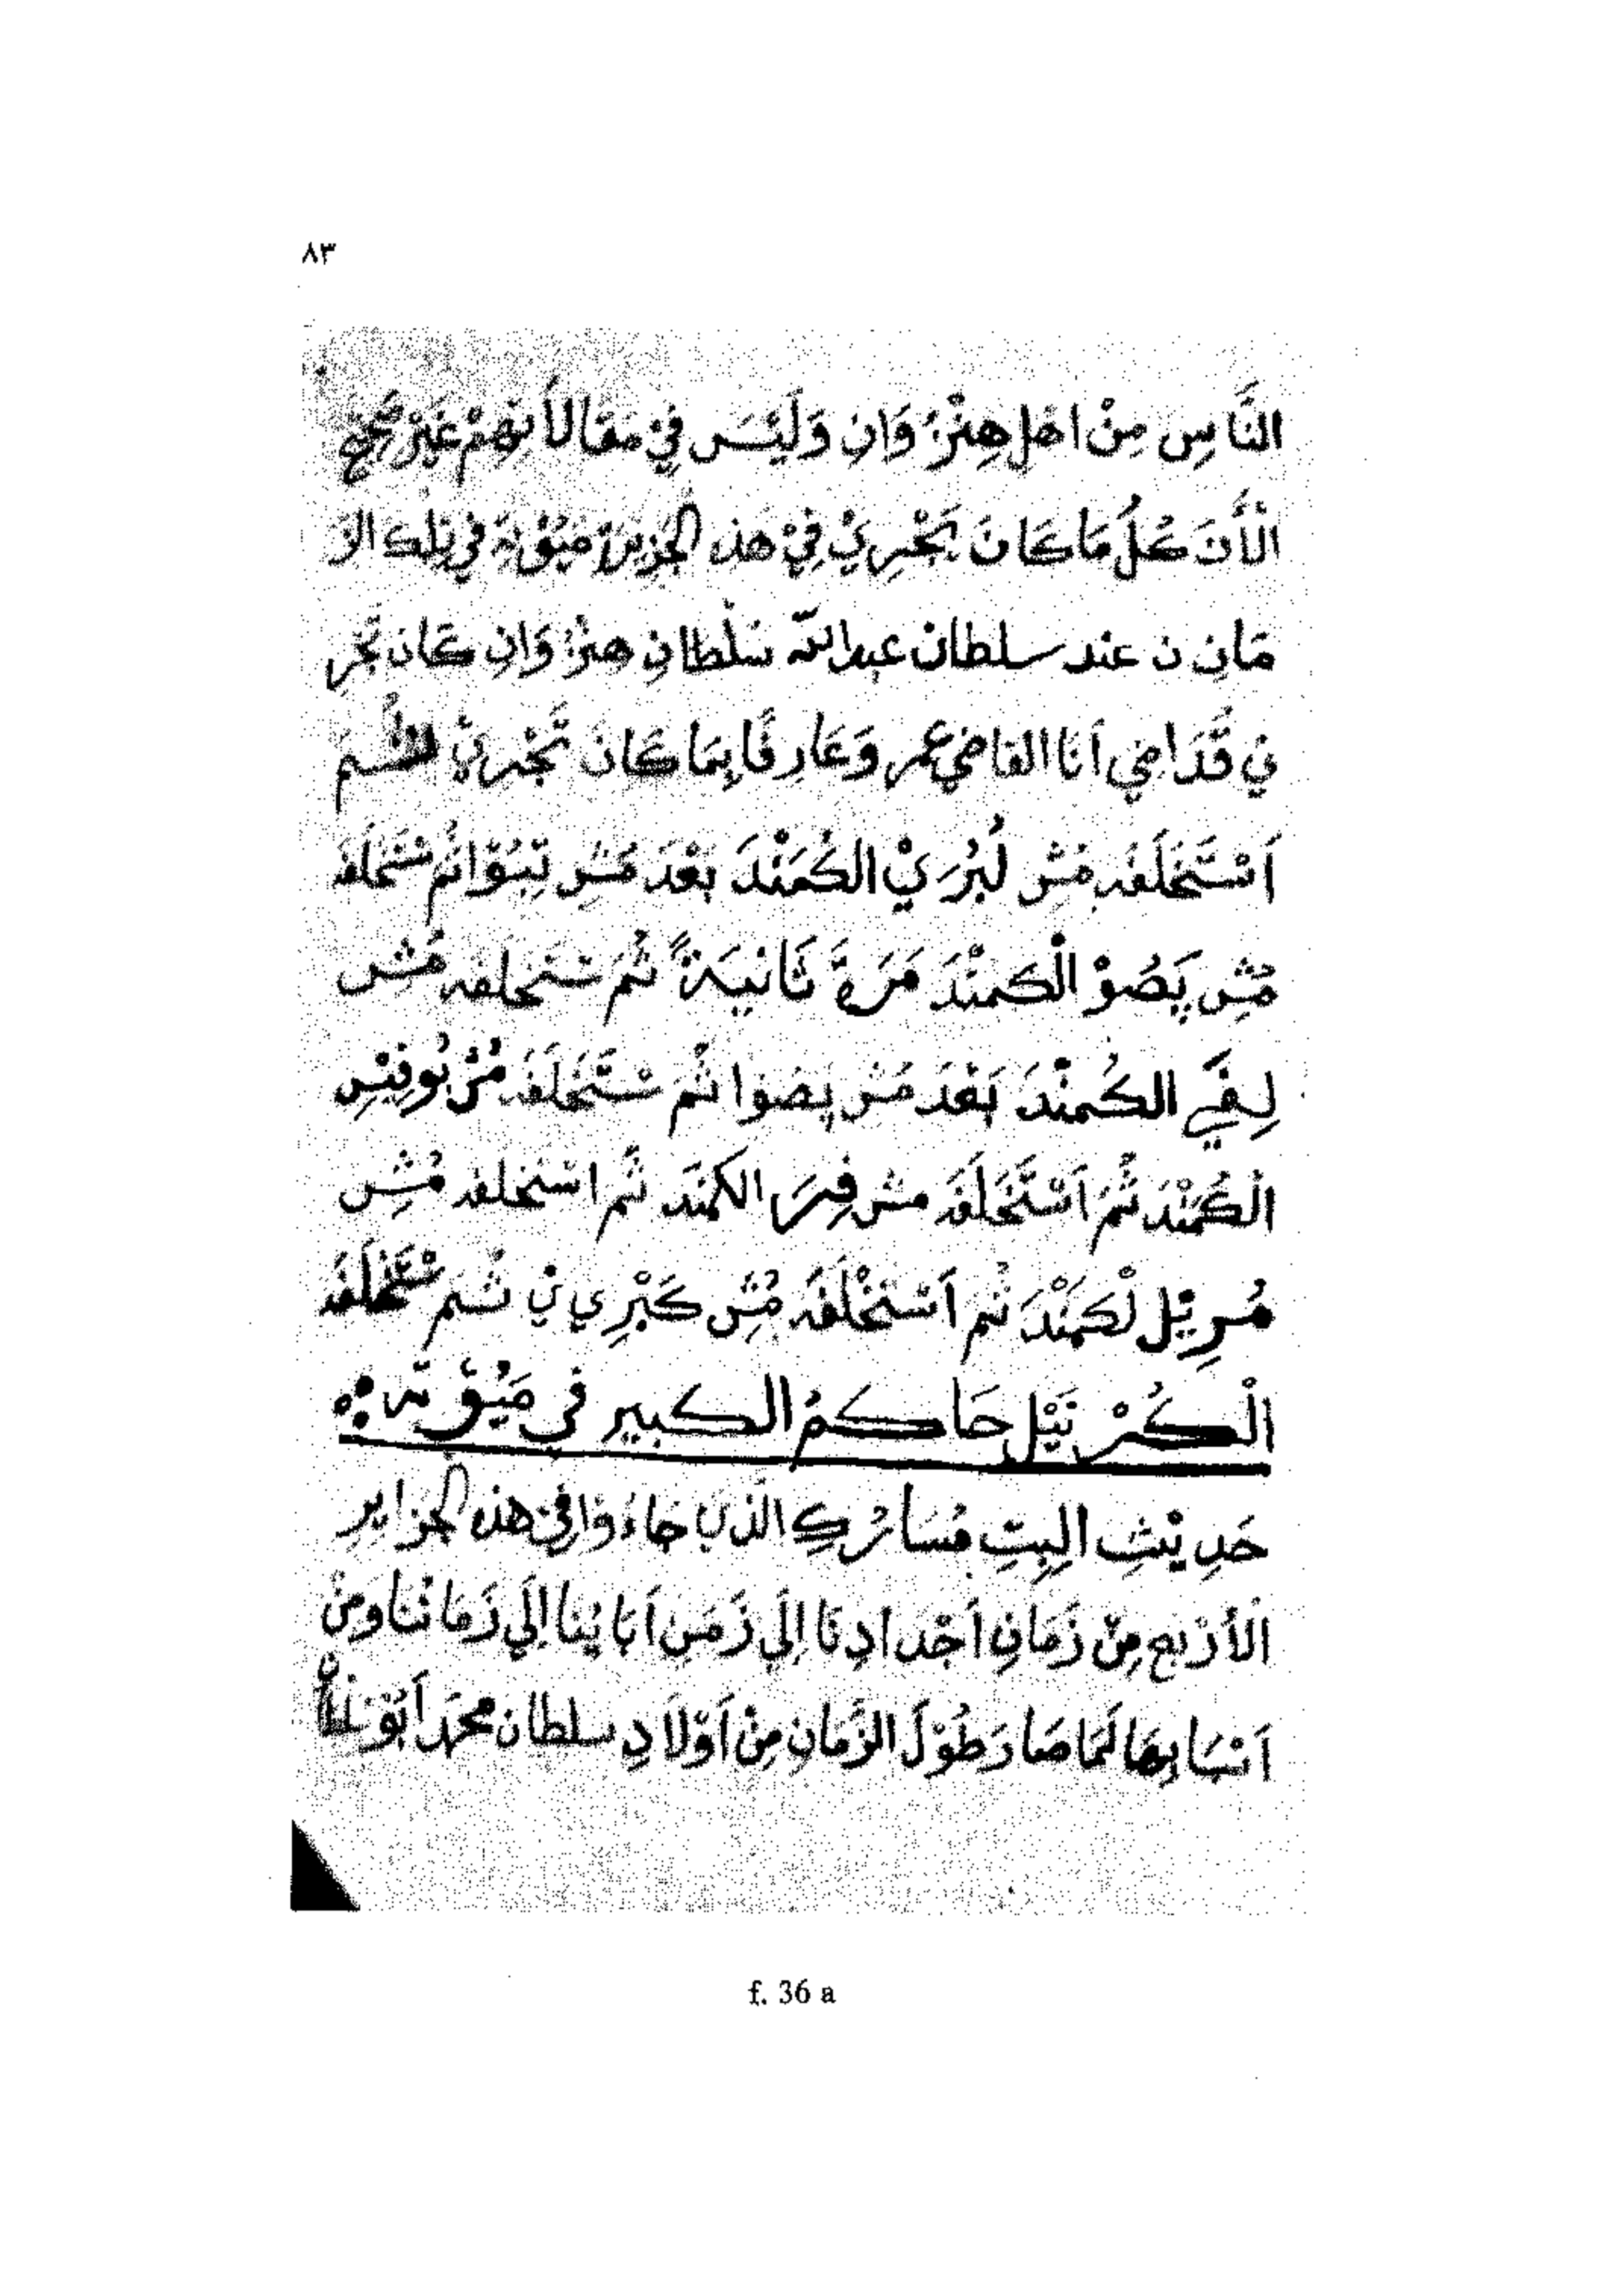 ٨٣
النَّاسِ مِنْ اهل هِنْزُ وَانِ وَلَيْسَ فِيْ مَقَالاَتِهِمْ غَيْرَ صحيح
الْأَنَ كُلُّ مَا كَانَ يَجْرِيْ فِيْ هَذِهِ الجَزِيرَة مَيُوْتَة فِي تِلْكَ الز
مَانِ ن عند سلطان عبد الله سُلْطانِ هِنْزُ وَانِ كَان تَجْرِ
ي قُدَّامِي اَنَا القاضِي عمر وَعَارِفًا بِمَا كَانَ تَجْرِيْ ثُمَّ
اَسْتَخْلَفَه مُشِ لُبُرَيْ الكُمَنْدَ بَعْدَ مُشِ تِبُوْا ثُمَّ سْتَخْلَفَه
مُشِ پَصُوْ الْكمنْدَ مَرَةً ثَانِيَةً ثُمَ سْتَخلفه مُشِ
لِفَيْ الكُمنْدَ بَعْدَ مُشِ پَصُوا ثُمَ سْتَخْلَفَهُ مُشْ بُوفِيْسِ
الْكُمَنْدَ ثُمَ اَسْتَخْلَفَهُ مش فِرَ الكمنَدَ ثُم اسْتخلفه مُشِ
مُرِيْلِ لْكَمَنْدَ ثم اَسْتَخْلَفَه مُشِ كَبْرِي يْ ثُمَ سْتَخْلَفَه
الْكُرْنَيْل حَاكمُ الكبير في مَيُوْتَه
حَدِيْثِ البِتِ مُسَامُركِ الَّذِي جَاءُوا فِيْ هذه الجزايرِ
الْأَرْبعِ مِنْ زَمَانِ اَجْدَادِنَا إِلَي زَمَنِ اَبَائِنَا إِلَي زَمَانِنَا وَمِنْ
اَسْبَابِهَا لَمَا صَارَ طُوْلَ الزَّمَانِ مِنْ اَوْلاَدِ سلطان محمّد اَبُوْنَا
f. 36 a